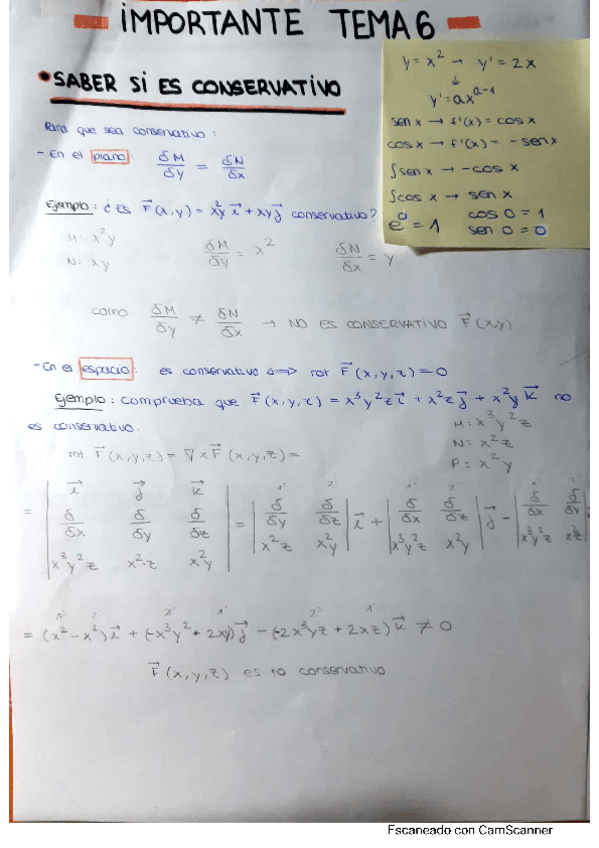 IMPORTANTE TEMA 6
• SABER SI ES CONSERVATIVO
y = x² → y' = 2x
↓
y' = ax^(a-1)
sen x → f'(x) = cos x
cos x → f'(x) = - sen x
∫sen x → - cos x
∫cos x → sen x
e⁰ = 1 cos 0 = 1
sen 0 = 0
Para que sea conservativo:
- En el plano: δM/δy = δN/δx
Ejemplo: ¿Es F(x,y) = x²y i + xy j conservativo?
M: x²y
N: xy
δM/δy = x² δN/δx = y
como δM/δy ≠ δN/δx → NO ES CONSERVATIVO F(x,y)
- En el espacio: es conservativo <=> rot F(x,y,z) = 0
Ejemplo: comprueba que F(x,y,z) = x³y²z i + x²z j + x²y k no
es conservativo.
M: x³y²z
N: x²z
P: x²y
rot F(x,y,z) = ∇ x F(x,y,z) =
= | i j k ; δ/δx δ/δy δ/δz ; x³y²z x²·z x²y | = | δ/δy δ/δz ; x²z x²y | i + | δ/δx δ/δz ; x³y²z x²y | j - | δ/δx δ/δy ; x³y²z x²z
= (x² - x²) i + (-x³y² + 2xy) j - (-2x³yz + 2xz) k ≠ 0
F(x,y,z) es no conservativo
Escaneado con CamScanner